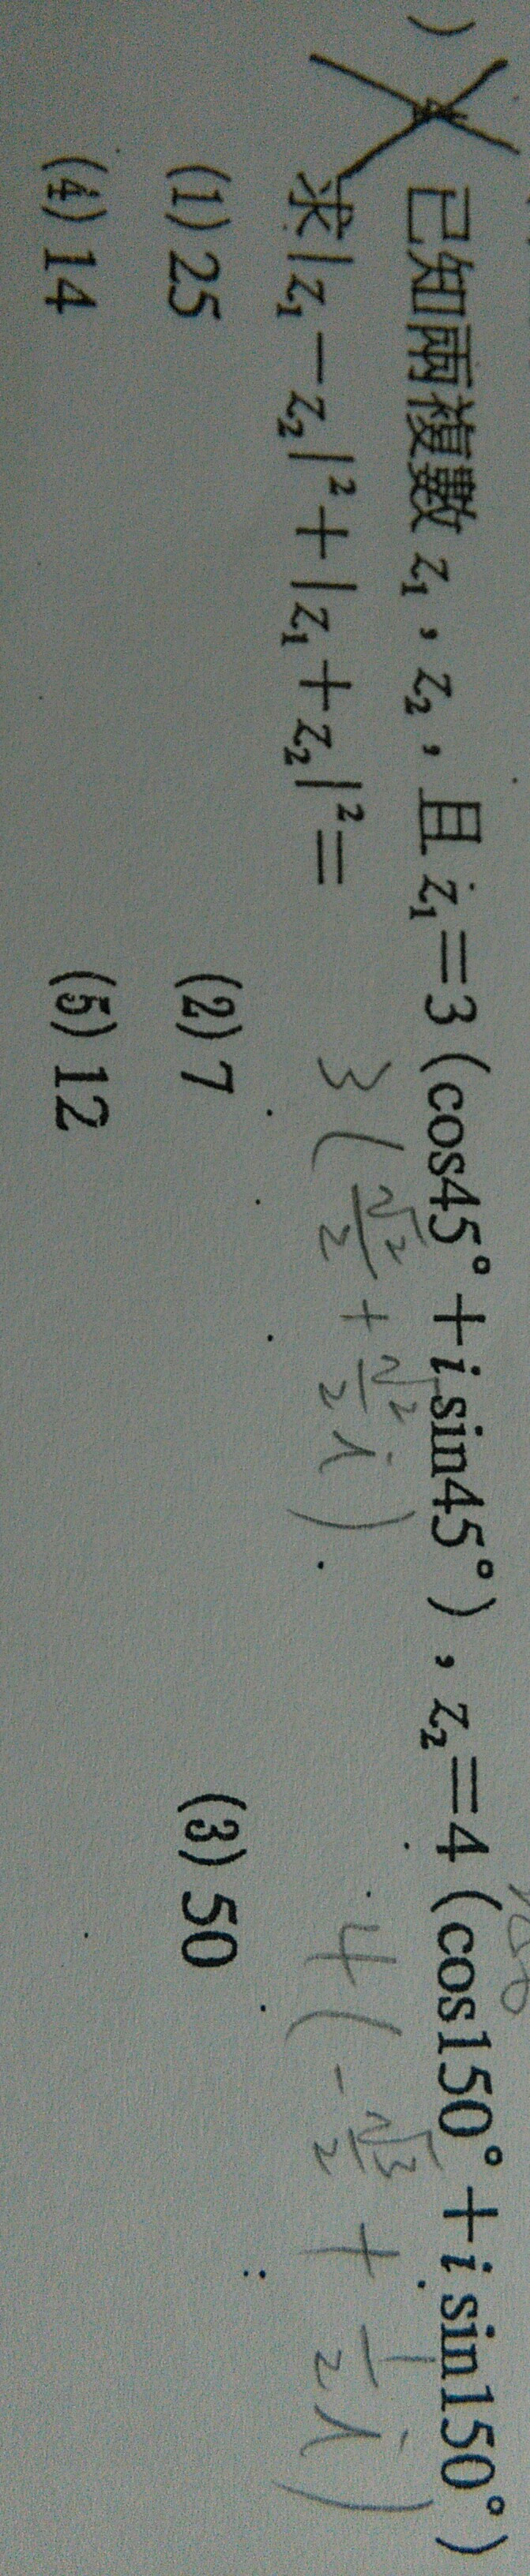 ) 4 已知兩複數 z₁，z₂，且 z₁＝3（cos45°＋i sin45°），z₂＝4（cos150°＋i sin150°）
求|z₁－z₂|²＋|z₁＋z₂|²＝
3(√2/2 + √2/2 i) 4(-√3/2 + 1/2 i)
(1) 25 (2) 7 (3) 50
(4) 14 (5) 12